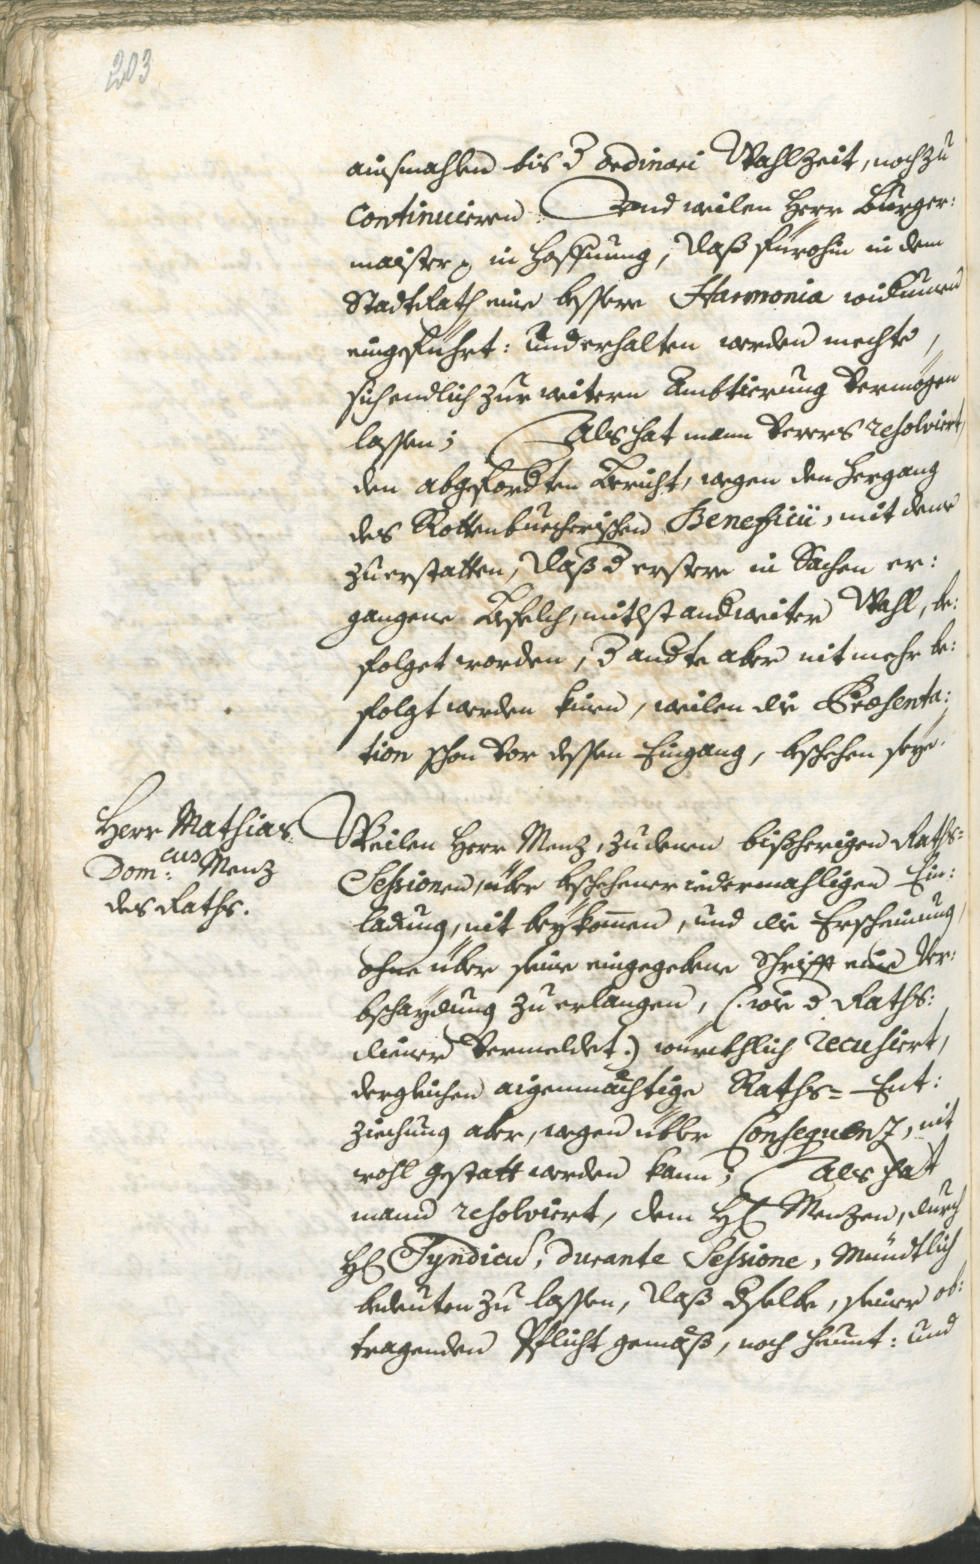 203
ausmahlen bis d ordinari Wahlzeit, noch zu
continuieren. Vnd weilen Herr Burger:
maister in Hoffnung, daß fürohin in dem
Stadt Rath eine bessere Harmonia
eingeführt: und erhalten werden mechte,
sich endlich zur weitern Ambtierung vermögen
lassen; Als hat mann verers resolviert,
den abgeforderten Bericht, wegen den Hergang
des Rottenbuecherischen Beneficii, mit deme
zuerstatten, daß d erstere in Sachen er:
gangene Befelch, mitlst andweiter Wahl, be:
folget worden, d andte aber nit mehr be:
folgt werden kinen, weilen die Præsenta:
tion schon vor dessen Eingang, beschehen seye.
Herr Mathias
Dom:cus Menz
des Raths.
Weilen Herr Menz, zu denen bißherigen Raths=
Sessionen, über beschehener iedermahligen Ein:
ladung, nit beykommen, und die Erscheinung,
ohne über seine eingegebene Schrifft eine Ver:
bschaydung zu erlangen, (: wie d Raths:
diener vermeldet :) würckhlich recusiert,
dergleichen aigenmächtige Raths= Ent:
ziechung aber, wegen übler Consequenz, nit
wohl gestatt werden kann; Als hat
mann resolviert, dem H: Menzen, durch
H: Syndicus, durante Sessione, Mündtlich
bedeuten zu lassen, daß dselbe, seiner ob:
tragenden Pflicht gemäß, noch heunt: und